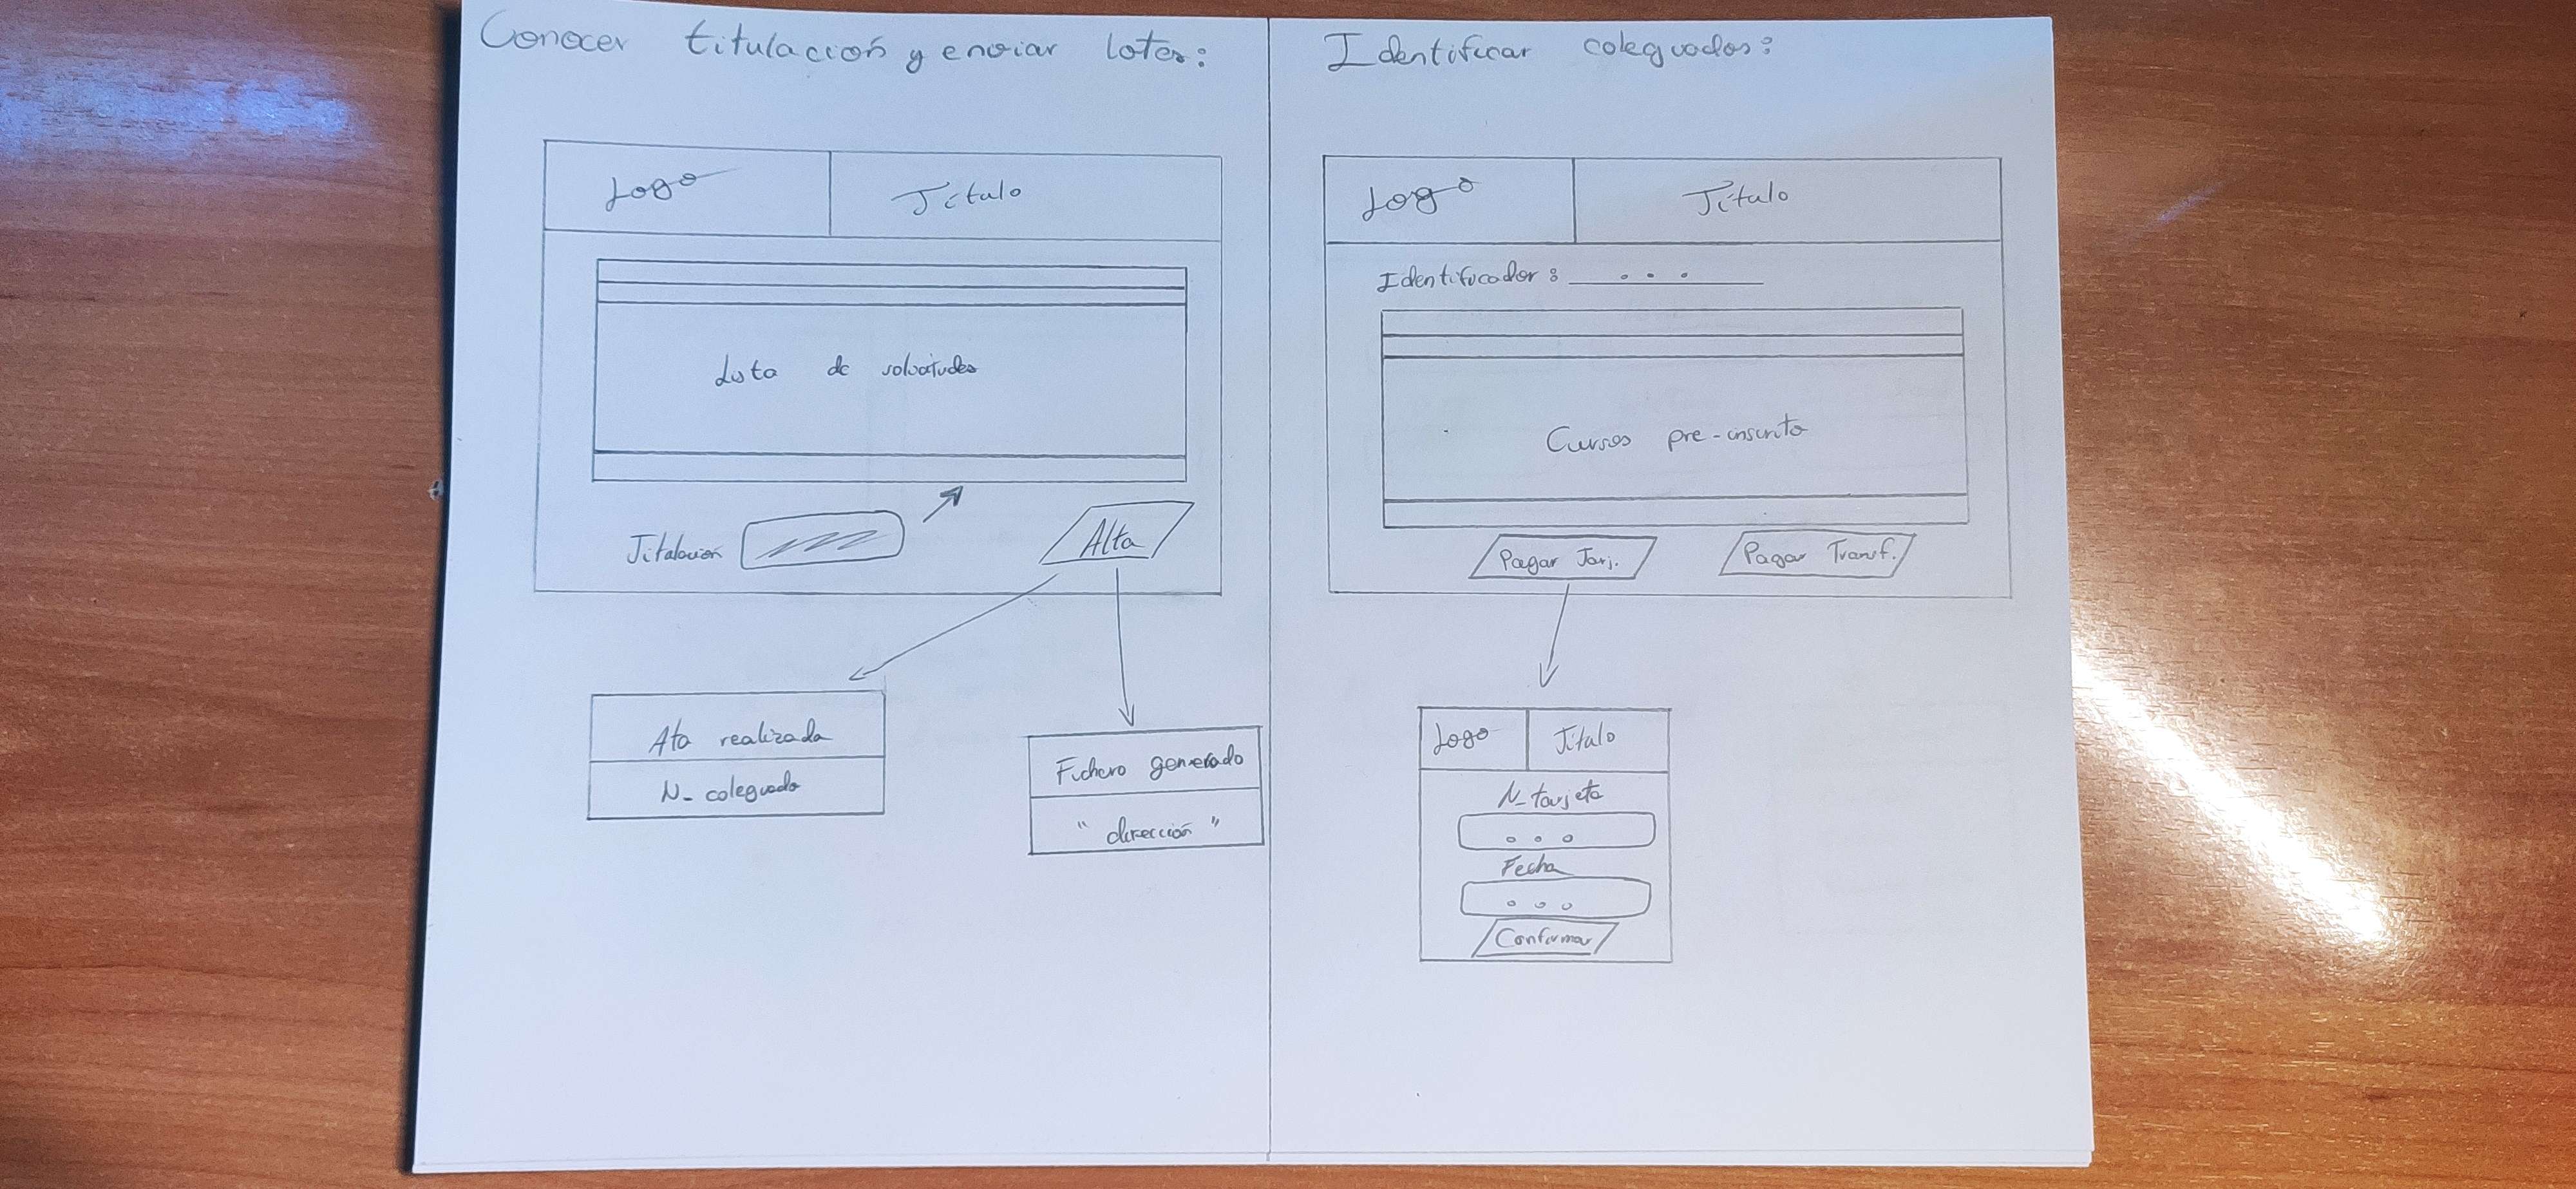 Conocer titulación y enviar lotes:
Logo
Título
Lista de solicitudes
Titulación
Alta
Alta realizada
N_ colegiado
Fichero generado
" dirección "
Identificar colegiados:
Logo
Título
Identificador: ...
Cursos pre-inscrito
Pagar Tarj.
Pagar Transf.
Logo
Título
N_ tarjeta
...
Fecha
...
Confirmar